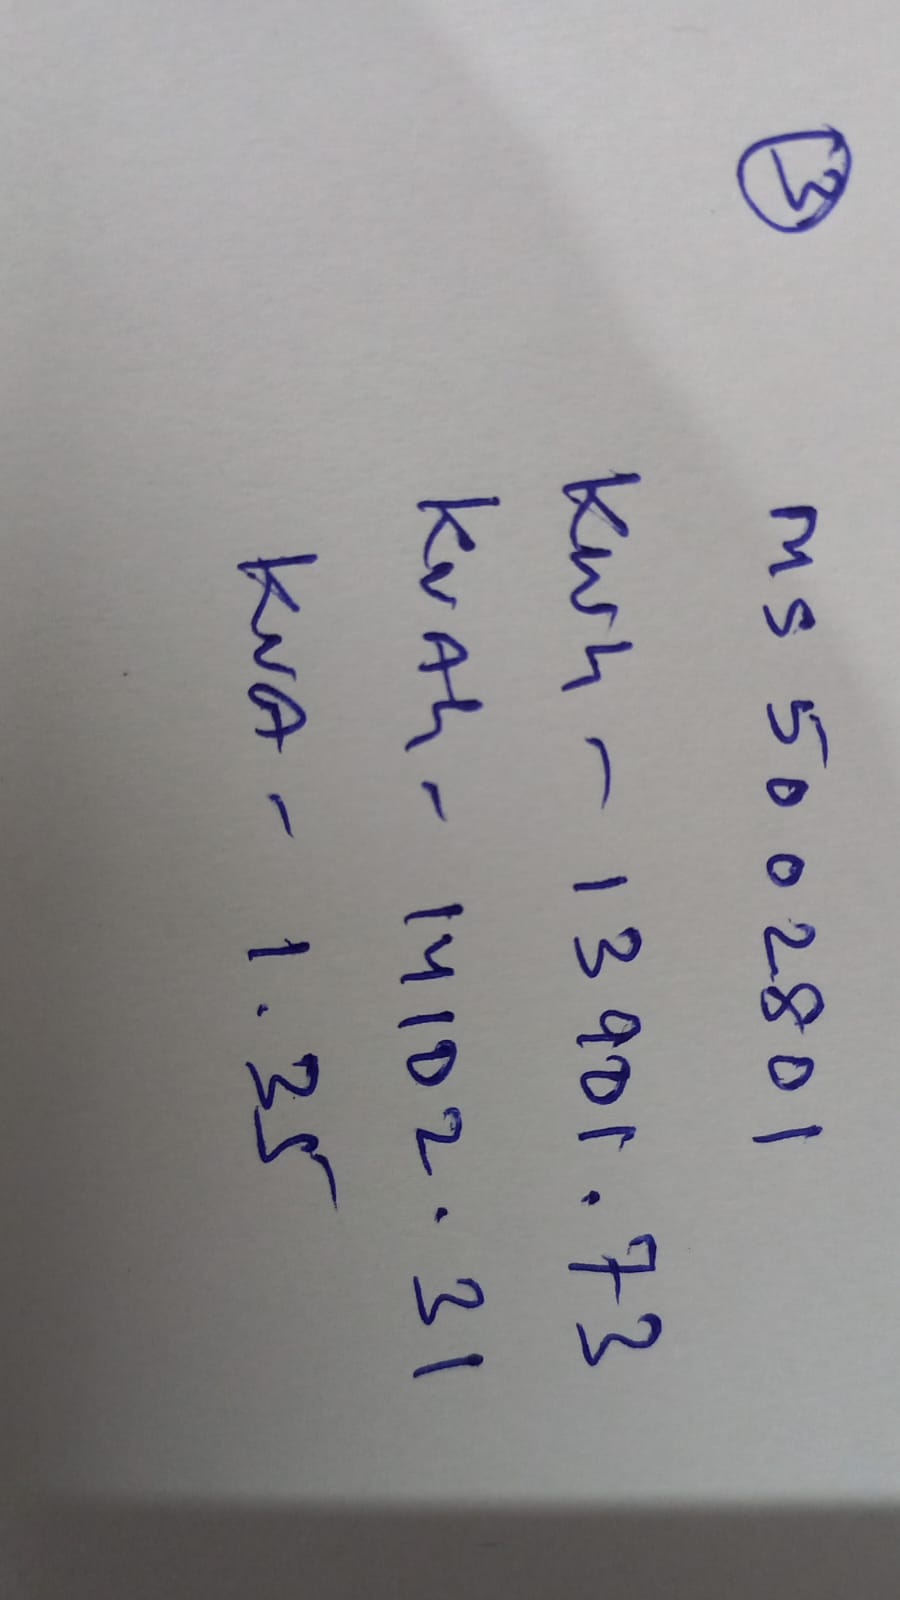 3
MS 5002801
Kwh - 13901.73
KvAh - 14102.31
KVA - 1.35